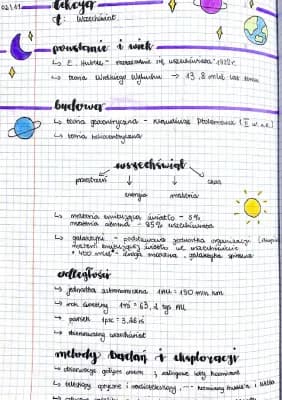 02.1.11
Lekcja
t: Wszechświat
powstanie i wiek
↳ E. Hubble - rozszerzanie się wszechświata 1929 r.
↳ teoria Wielkiego Wybuchu → 13,8 mld lat temu
budowa
↳ teoria geocentryczna - Klaudiusz Ptolemeusz (II w. n.e.)
↳ teoria heliocentryczna
wszechświat
przestrzeń czas
energia materia
↳ materia emitująca światło - 5%
materia ciemna - 95% wszechświata
↳ galaktyki - podstawowa jednostka organizacji
materii emitującej światło we wszechświecie
galaktyka spiralna
odległości
↳ jednostka astronomiczna 1AU = 150 mln km
↳ rok świetlny 63,2 tys AU
↳ parsek 1pc = 3,26
↳ obserwowalny wszechświat
metody badań i eksploracji
↳ obserwacje gołym okiem
↳ teleskopy optyczne i radioteleskopy